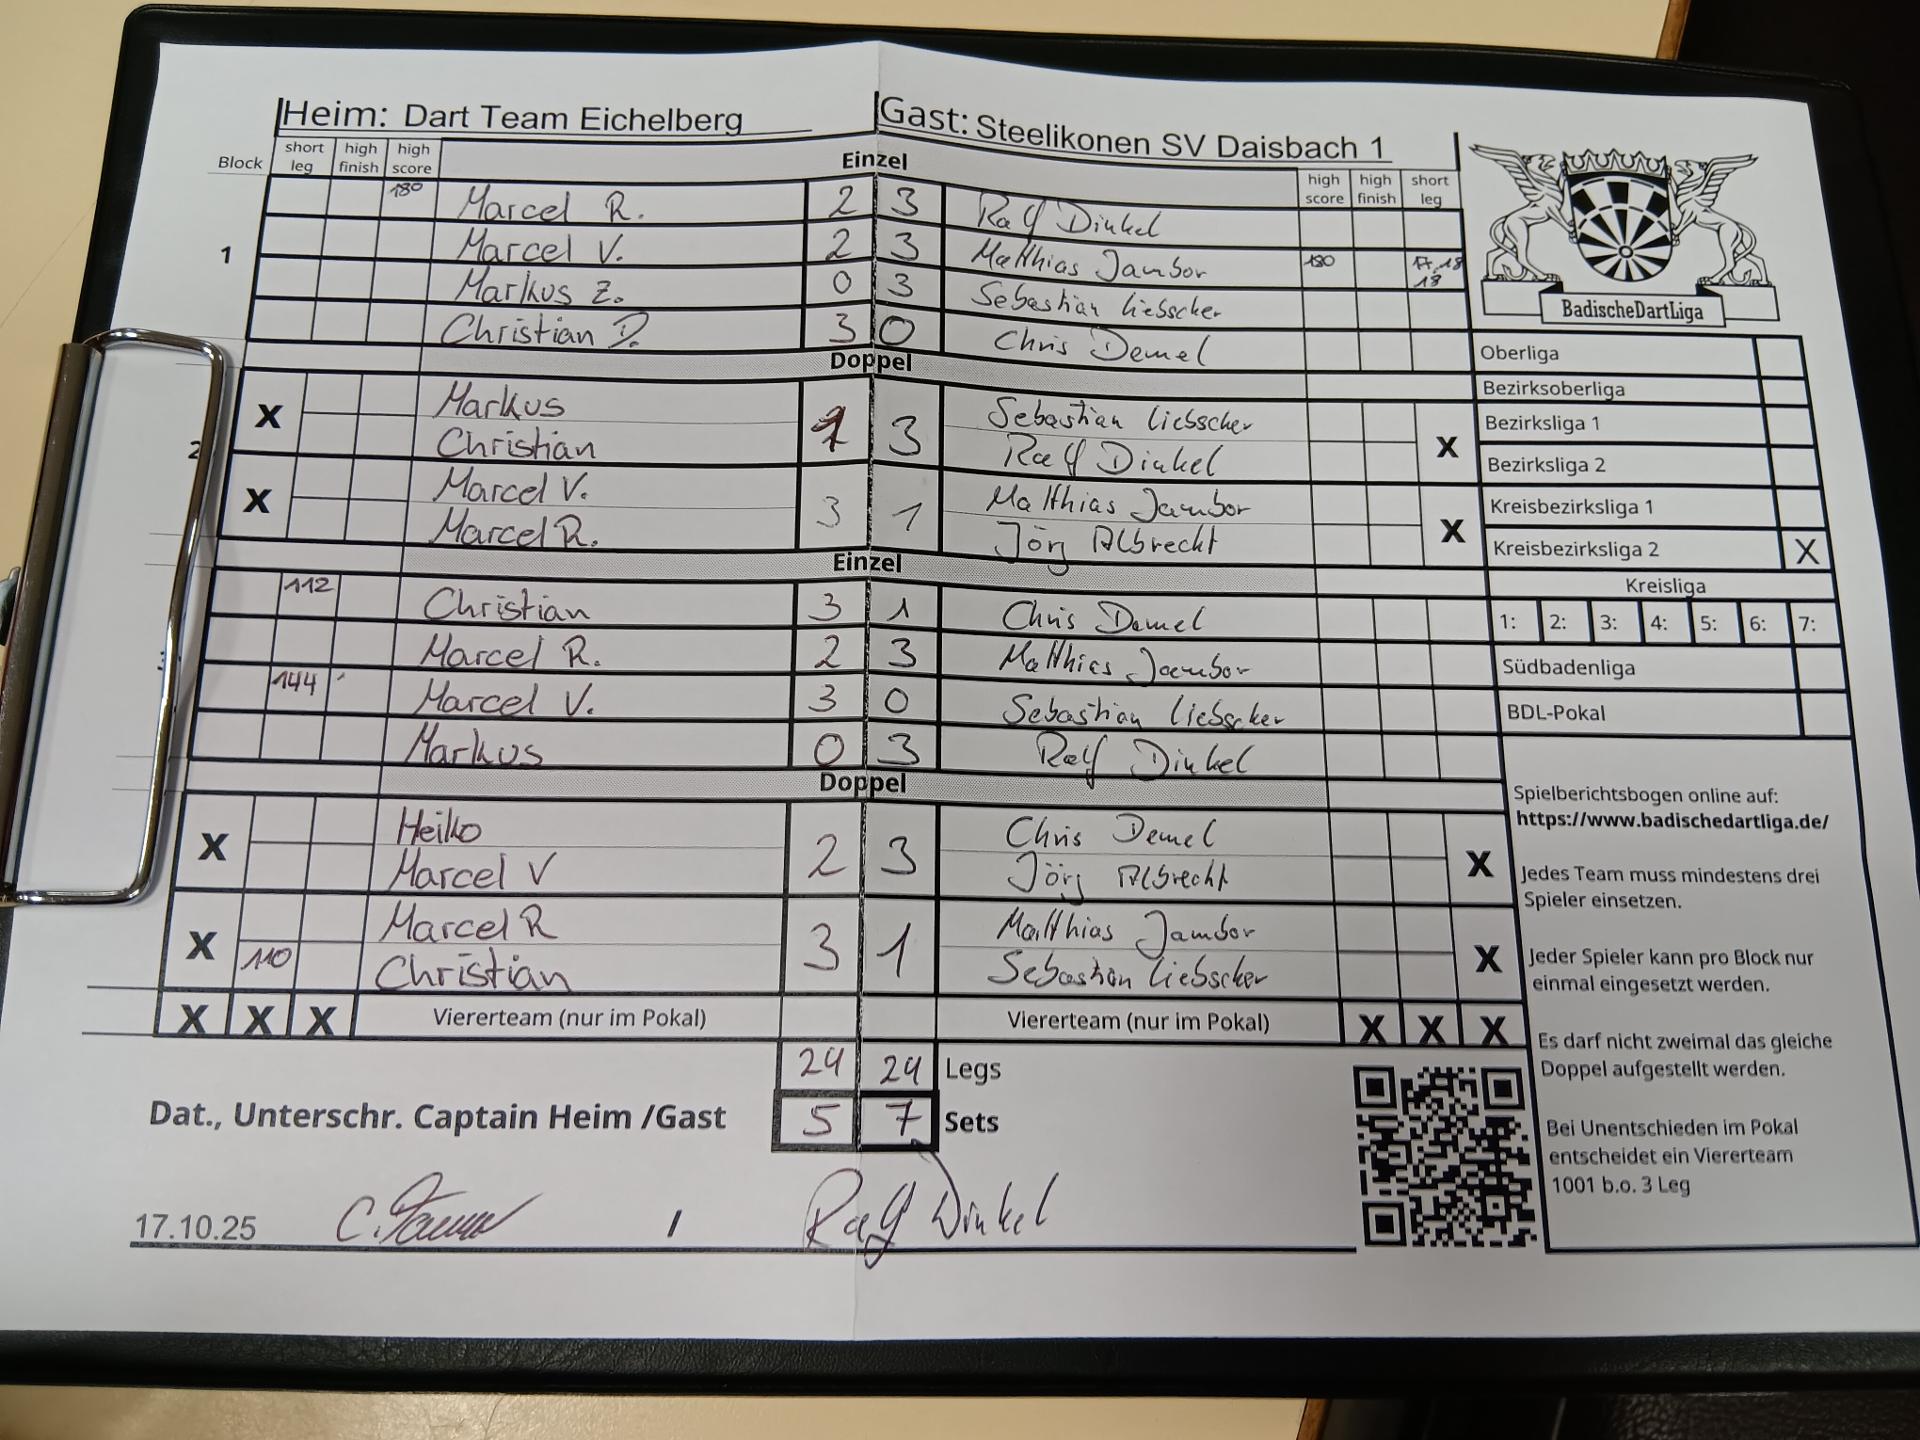 Heim: Dart Team Eichelberg Gast: Steelikonen SV Daisbach 1
Block short leg high finish high score Einzel high score high finish short leg
180 Marcel R. 2 3 Ralf Dinkel
1 Marcel V. 2 3 Matthias Jambor 180 17, 18 18
Markus Z. 0 3 Sebastian Liebscher
Christian D. 3 0 Chris Demel
Doppel
X Markus 1 3 Sebastian Liebscher X
2 Christian Ralf Dinkel
X Marcel V. 3 1 Matthias Jambor X
Marcel R. Jörg Albrecht
Einzel
112 Christian 3 1 Chris Demel
Marcel R. 2 3 Matthias Jambor
144 Marcel V. 3 0 Sebastian Liebscher
Markus 0 3 Ralf Dinkel
Doppel
X Heiko 2 3 Chris Demel X
Marcel V Jörg Albrecht
X Marcel R 3 1 Matthias Jambor X
110 Christian Sebastian Liebscher
X X X Viererteam (nur im Pokal) Viererteam (nur im Pokal) X X X
24 24 Legs
Dat., Unterschr. Captain Heim /Gast 5 7 Sets
17.10.25 C. / Ralf Dinkel
BadischeDartLiga
Oberliga
Bezirksoberliga
Bezirksliga 1
Bezirksliga 2
Kreisbezirksliga 1
Kreisbezirksliga 2 X
Kreisliga
1: 2: 3: 4: 5: 6: 7:
Südbadenliga
BDL-Pokal
Spielberichtsbogen online auf:
https://www.badischedartliga.de/
Jedes Team muss mindestens drei
Spieler einsetzen.
Jeder Spieler kann pro Block nur
einmal eingesetzt werden.
Es darf nicht zweimal das gleiche
Doppel aufgestellt werden.
Bei Unentschieden im Pokal
entscheidet ein Viererteam
1001 b.o. 3 Leg